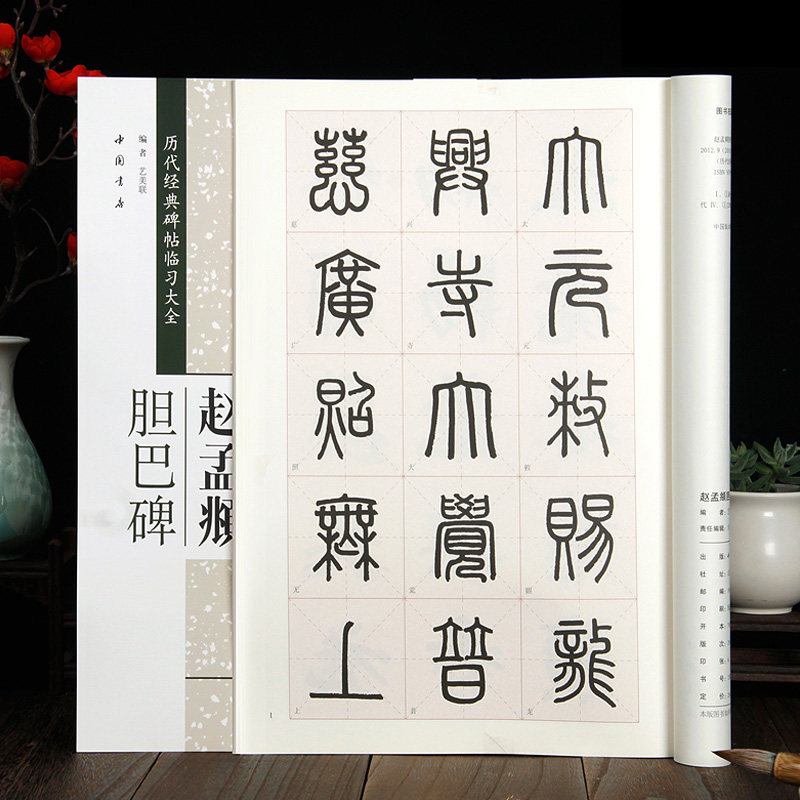 历代经典碑帖临习大全
编者 艺美联
中国书店
赵孟頫
胆巴碑
大元敕賜龍
興寺大覺普
慈廣照無上
大
元
敕
龙
兴
寺
大
觉
普
慈
广
照
无
上
1
图书
赵孟頫
2012.9
ISBN
代 Ⅳ. ①
中国版
赵孟頫
编 者：
责任编辑：
出 版：
社 址：
邮 编：
印 刷：
开 本：
版 次：
印 张：
书 号：
定 价：
本版图书如